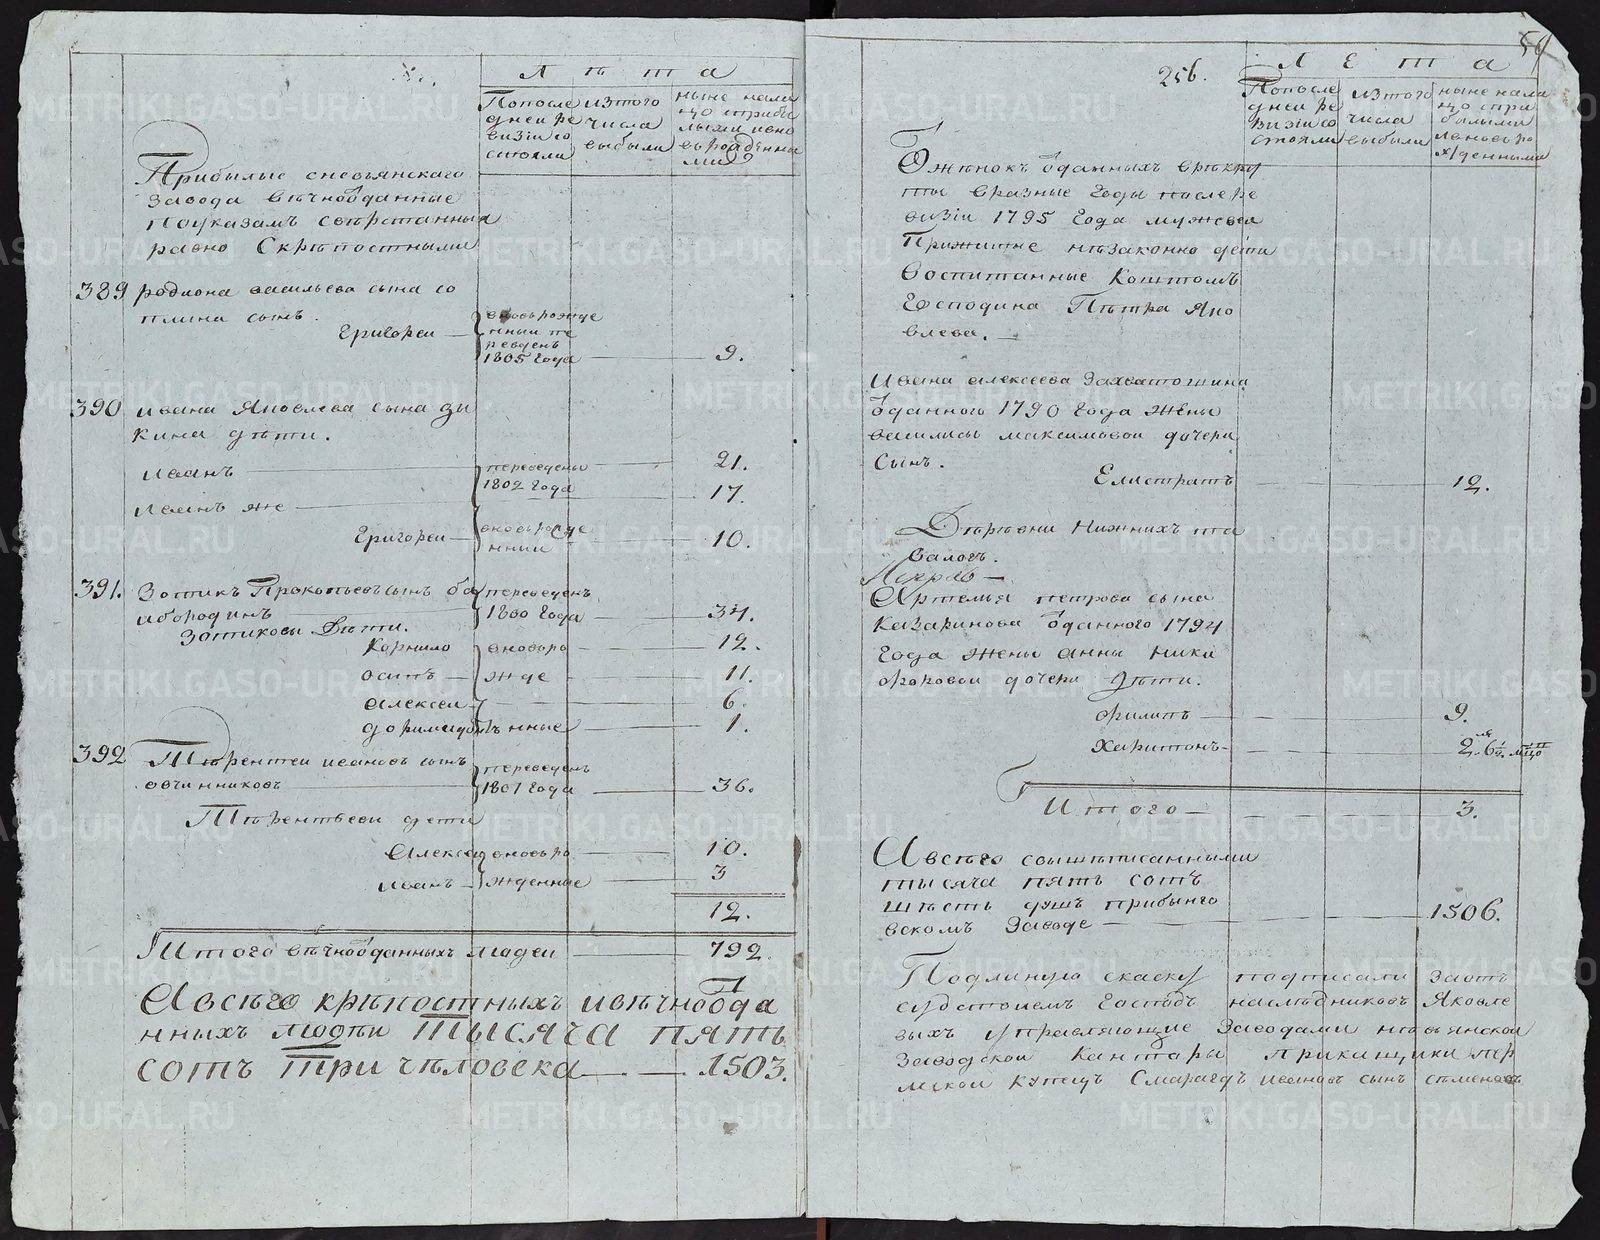 Лѣта
Попосле дней ре визіи со стояли
изтого числа выбыли
ныне нали цо сприбы лыми ивно вь рожденны ми
Прибылые сневьянскаго
завода вѣчноѿданные
поуказамъ совѣрстанныя
равно скрѣпостными
389 родиона васильева сына со
ппина сынъ.
Григореи — вновьрожде нныи пе реведенъ 1805 года — 9.
390 ивана Яковлева сына зы
кина дѣти.
иванъ — переведены 1802 года — 21.
иванъ же — 17.
Григореи — вновьрожде нныи — 10.
391. Зотикъ Прокопьевъ сынъ ба
ибородинъ — переведенъ 1800 года — 34.
Зотиковы Дѣти.
Корнило — вновьро — 12.
осипъ — жде — 11.
алексеи — 6.
доримедонтъ — нные — 1.
392 Тѣрентеи ивановъ сынъ
овчинниковъ — переведенъ 1807 года — 36.
Тѣрентьевы дети
Алексеи вновьро — 10.
иванъ — жденные — 3
12.
Итого вѣчноѿданныхъ людеи — 792.
Авсѣго крѣпостныхъ ивѣчноѿда
нныхъ людѣи тысяча пять
сотъ три чѣловека — 1503.
59
256.
Лета
Попосле дней ре визіи со стояли
изтого числа выбыли
ныне нали цо спри былыми ивновь ро жденными
Ѿжѣнокъ ѿданныхъ врѣкру
ты вразные годы послере
визіи 1795 года мужевеи
Прижитые нѣзаконно дети
воспитанные Коштомъ
Господина Пѣтра Яко
влева. —
ивана алексеева Захватошина
ѿданного 1790 года жены
василисы максимовои дочери
сынъ.
Елистратъ — 12.
Дѣрѣвни Нижнихъ та
валогъ.
Артемья петрова сына
Казаринова ѿданного 1794
года жены анны ники
форовои дочери дѣти.
филипъ — 9.
харитонъ — 2. 6½
Итого — 3.
Авсѣго свышѣписанными
тысяча пять сотъ
шѣсть душъ прибынго
вскомъ Заводе — 1506.
Подлинную скаску подписали заотъ
судствіемъ Господъ наслѣдниковъ Яковле
выхъ управляющие Заводами невьянской
заводской Канторы прикащики пер
мской купецъ Смарагдъ ивановъ сынъ сѣменовъ
METRIKI.GASO-URAL.RU